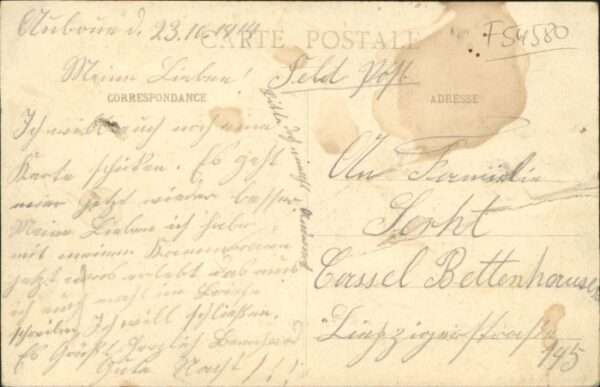 Auboue d. 23.10.1914
CARTE POSTALE
F54580
Meine Lieben!
Feld Post
CORRESPONDANCE
ADRESSE
Ich will euch noch eine
Karte schicken. Es geht
mir jetzt wieder besser.
Meine Lieben ich habe
mit meinen Kammeraden
jetzt was erlebt das muß
ich euch mahl im Briefe
schreiben Ich will schließen.
Es Grüßt
Gute Nacht!!!
Bitte
An Familie
Cassel Bettenhausen
Leipzigerstraße
195